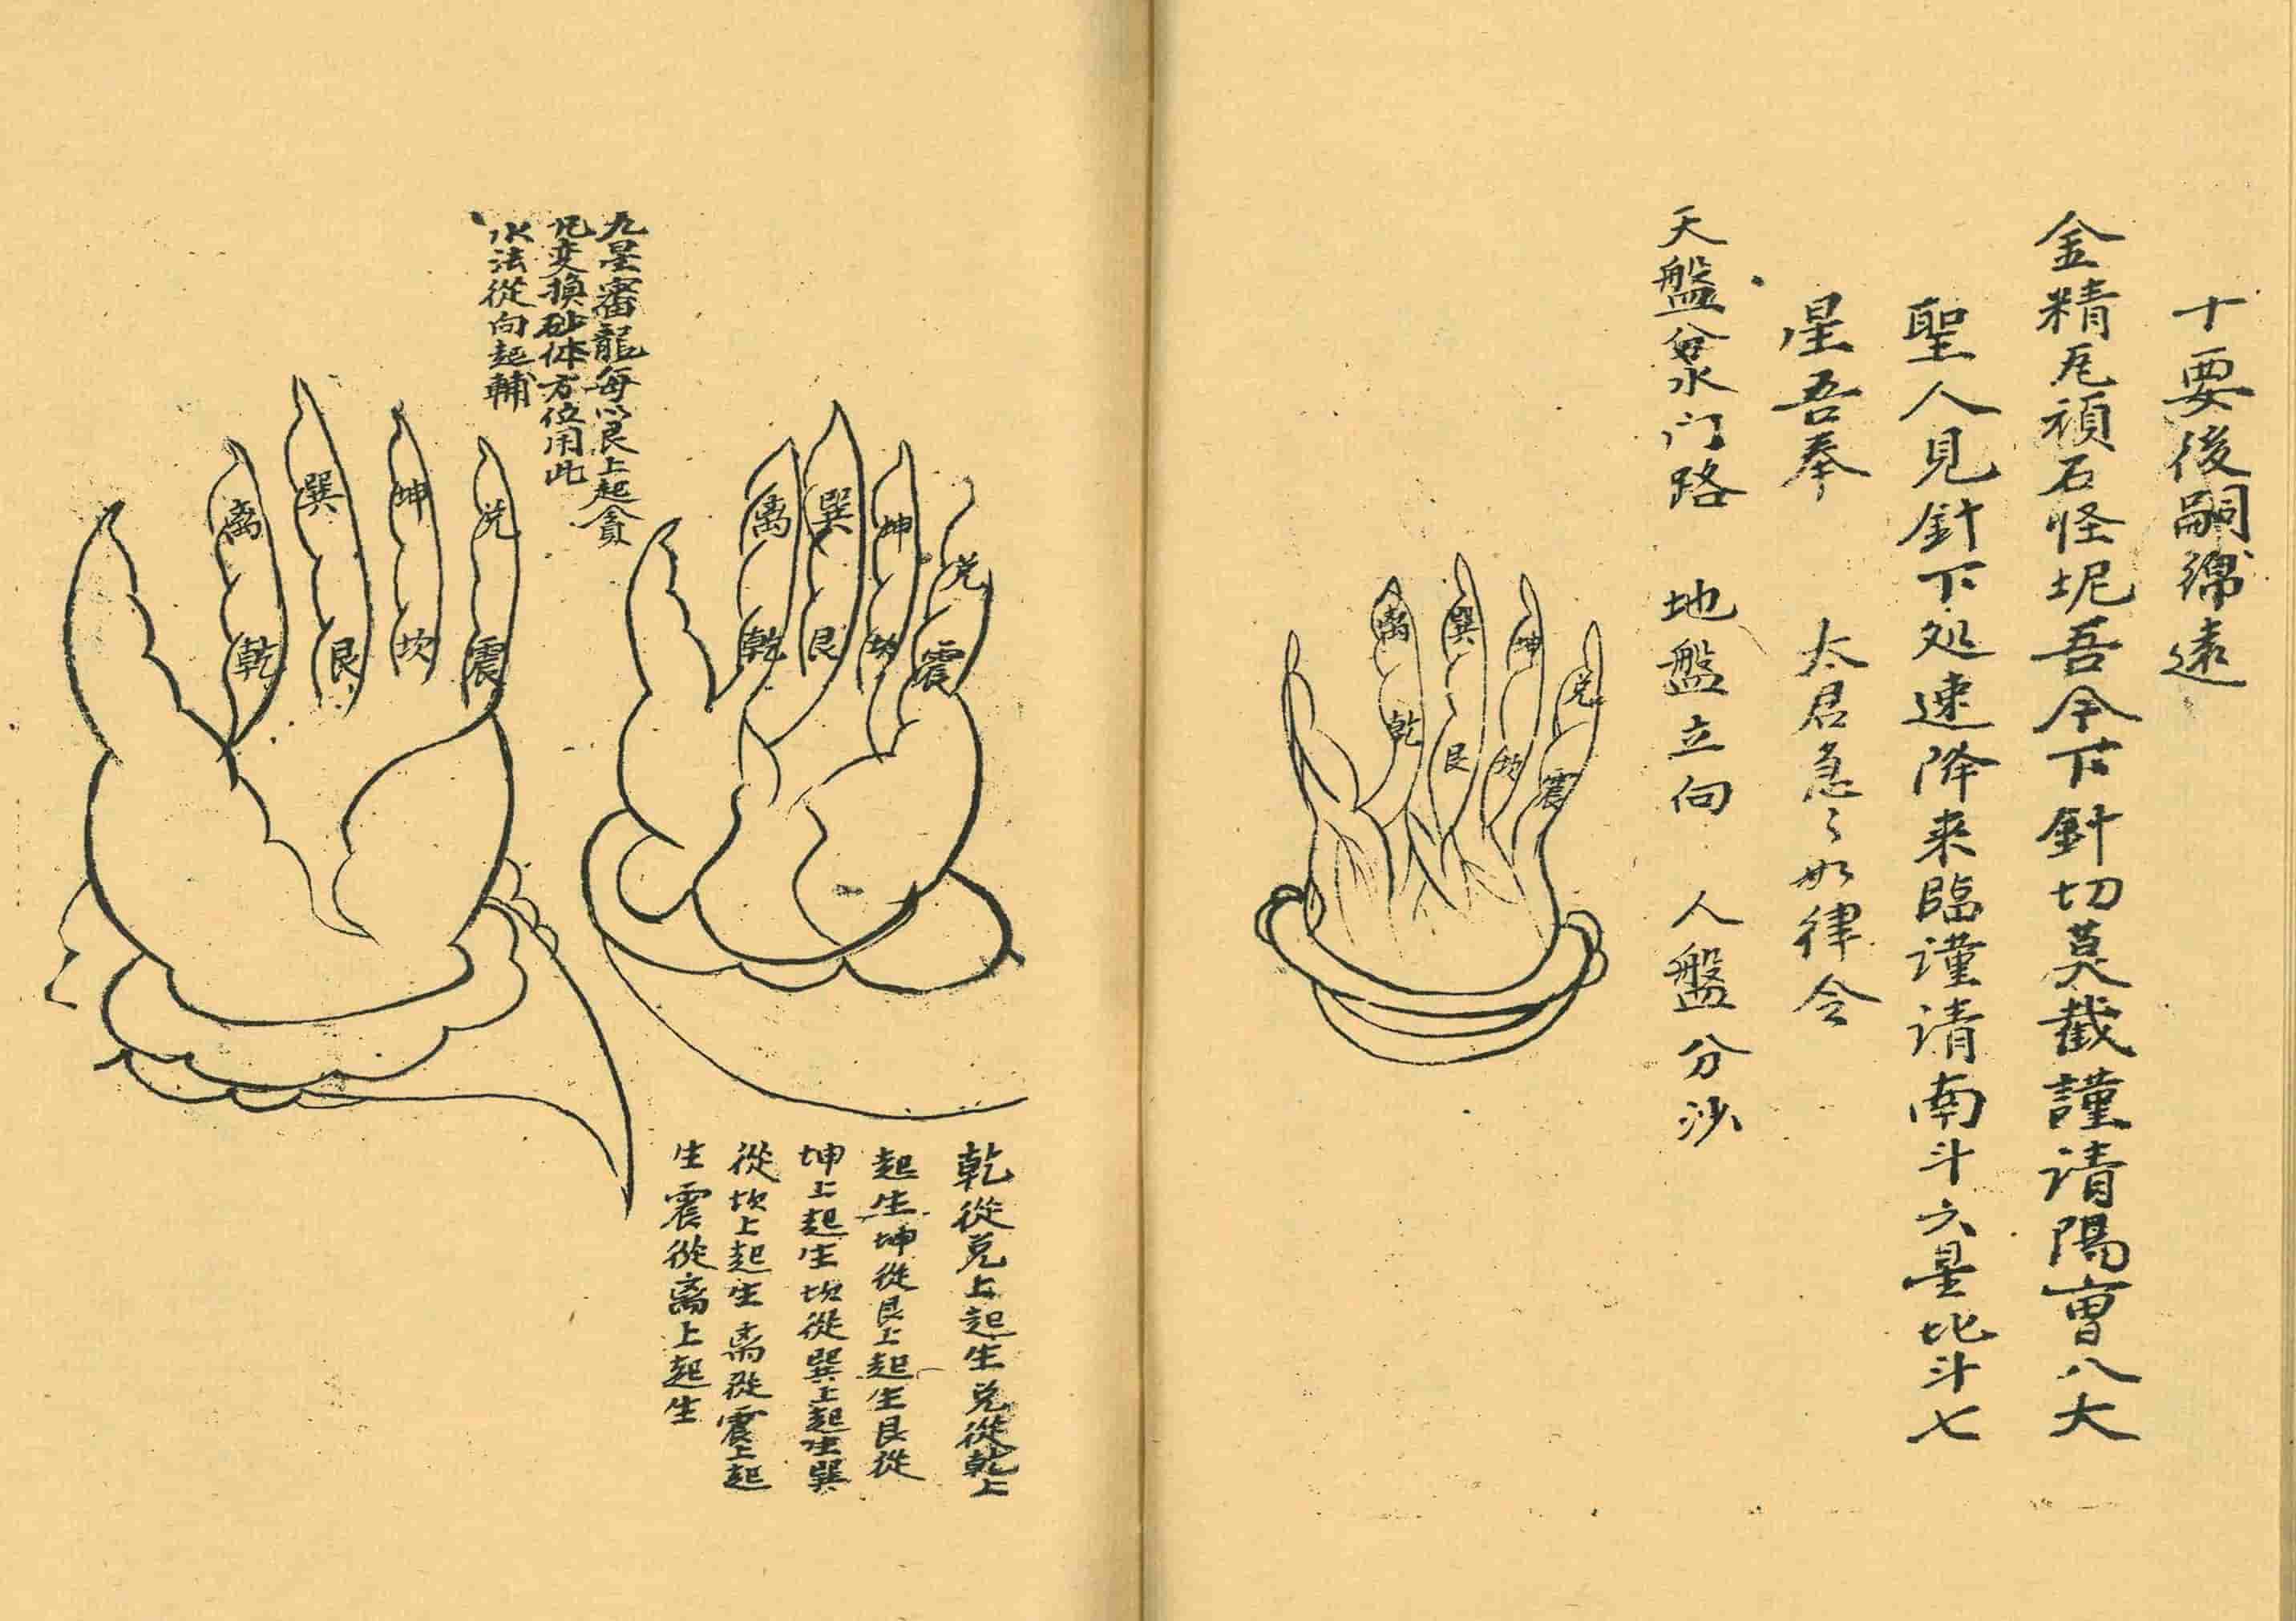 十要後嗣綿遠
金精凥禎石怪坭吾今下針切莫截謹请陽曺八大
聖人見針下処速降来臨谨请南斗六星北斗七
星吾奉 太君急々如律令
天盤兌水门路 地盤立向 人盤分沙
离 巽 坤 兑
乾 艮 坎 震
离 巽 坤 兑
乾 艮 坎 震
乾從兑上起生兑從乾上
起生坤從艮上起生艮從
坤上起生坎從巽上起生巽
從坎上起生离從震上起
生震從离上起生
九星審龍每以艮上起貪
凡变換砂体方位用此
水法從向起輔
离 巽 坤 兑
乾 艮 坎 震